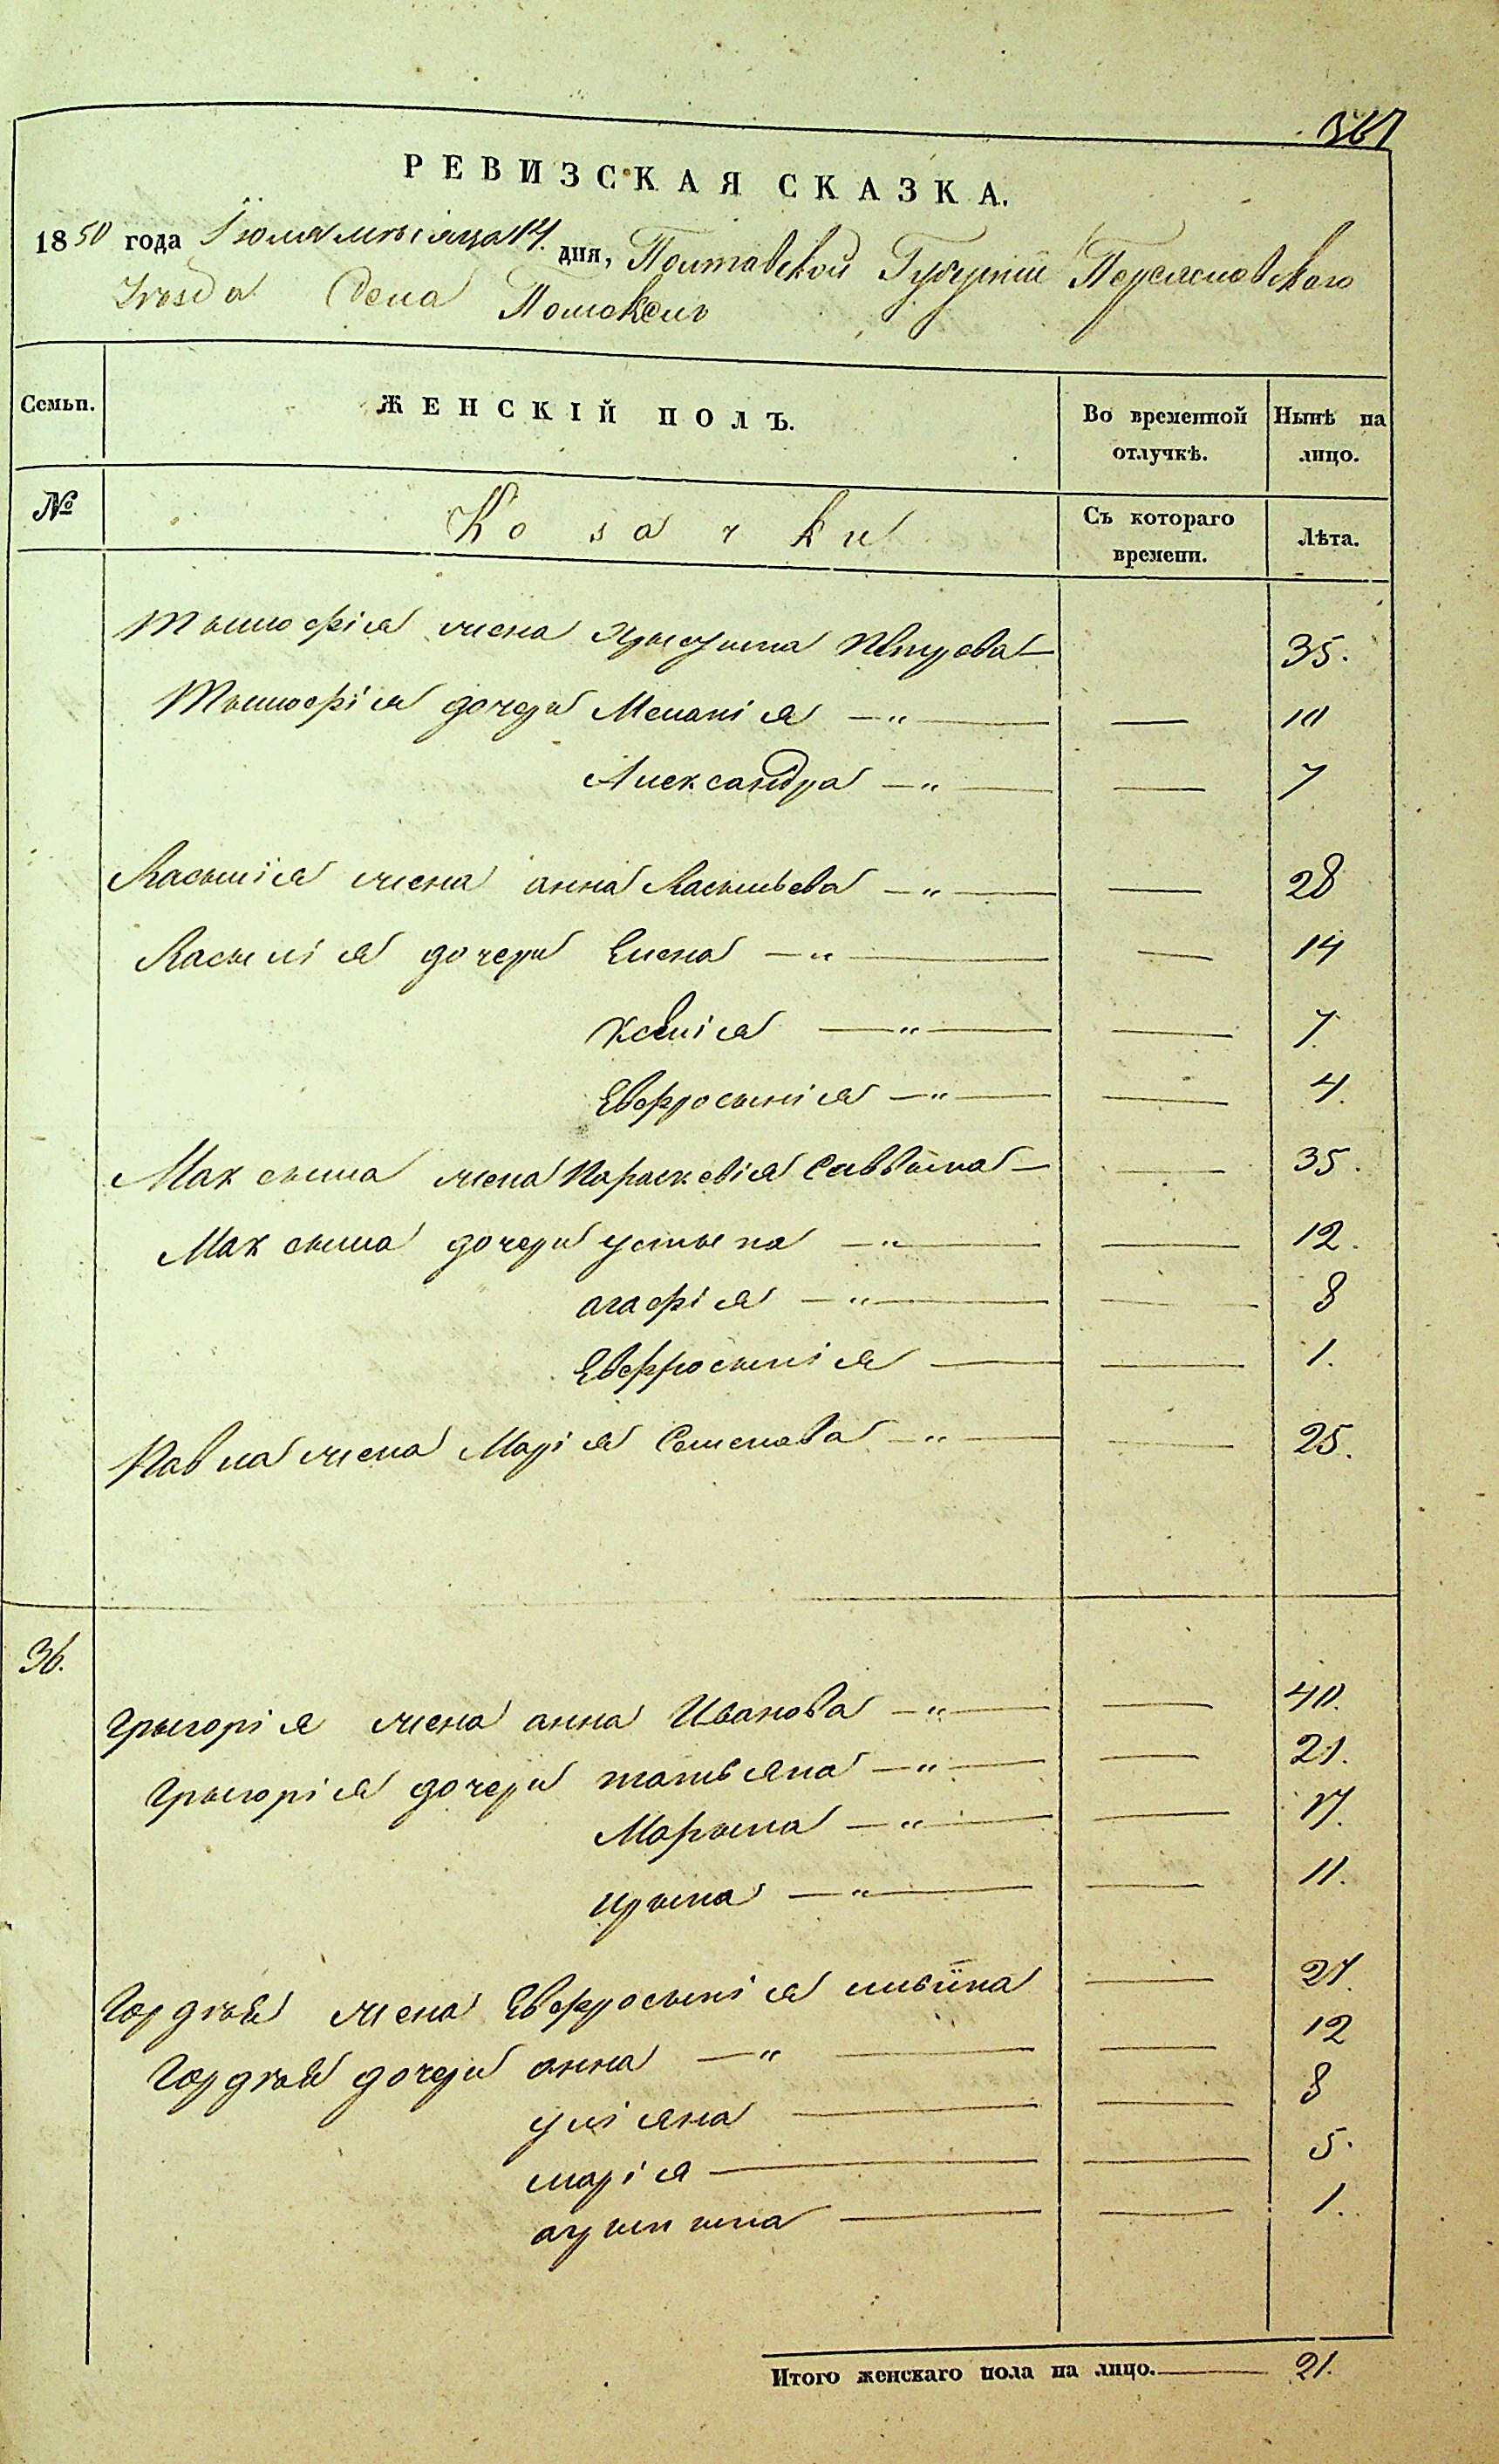 367
РЕВИЗСКАЯ СКАЗКА.
1850 года Іюля мѣсяца 14. дня, Полтавской Губерніи Переяславского
Уезда Села Помоклъ
Семьи. ЖЕНСКІЙ ПОЛЪ. Во временной отлучкѣ. Нынѣ на лицо.
№ Козачки Съ котораго времени. Лѣта.
Тымофія жена Хрыстына Петрова — 35.
Тымофія дочери Меланія — „ — — 10
Александра — „ — — 7
Васылія жена анна Васыльева — „ — — 28
Васылія дочери Елена — „ — — 14
Ксенія — „ — — 7.
Евфросынія — „ — — 4.
Максыма жена Параскевія Саввына — — 35.
Максыма дочери устына — „ — — 12.
агафія — „ — — 8
Евфросынія — — 1.
Павла жена Марія Семенова — „ — — 25.
36.
Грыгорія жена анна Иванова — „ — — 40.
Грыгорія дочери татьяна — „ — — 21.
Марына — „ — — 17.
ирына — „ — — 11.
Гордѣя жена Евфросынія ильина — 27.
Гордѣя дочери анна — „ — — 12
уліяна — — 8
марія — — 5.
— — 1.
Итого женскаго пола на лицо. — 21.